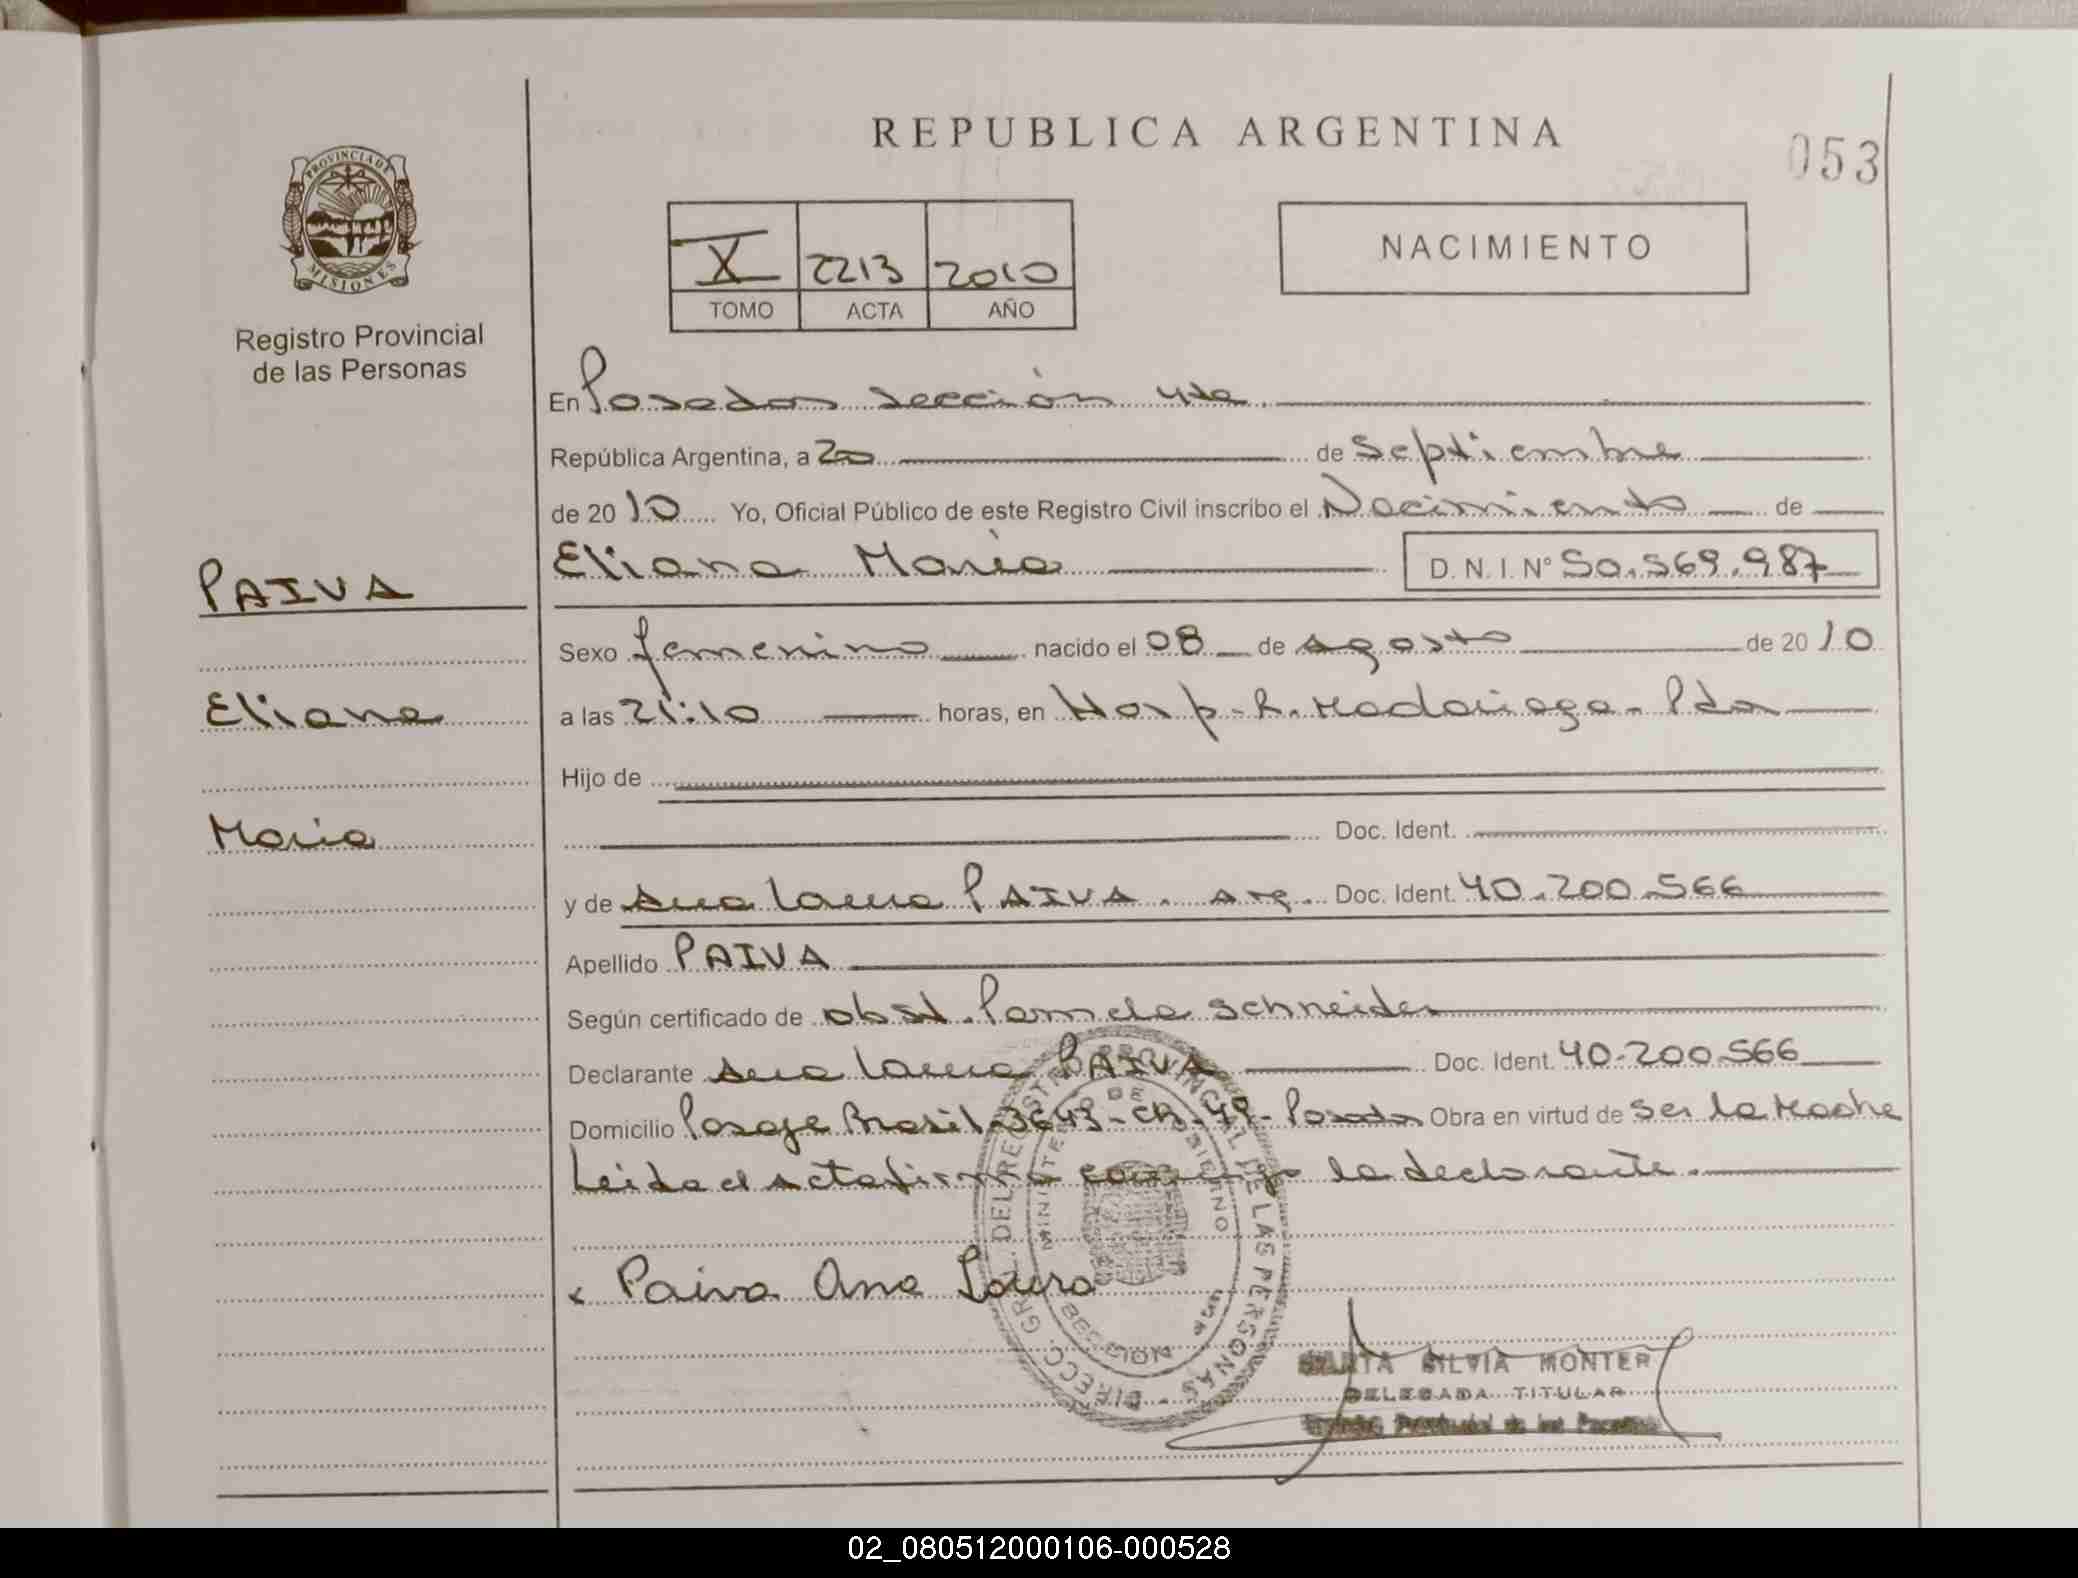 REPUBLICA ARGENTINA
053
PROVINCIA DE
MISIONES
Registro Provincial
de las Personas
X 2213 2010
TOMO ACTA AÑO
NACIMIENTO
En Posadas sección 4ta
República Argentina, a 20 de septiembre
de 2010 Yo, Oficial Público de este Registro Civil inscribo el Nacimiento de
Eliana María D.N.I. Nº 50.569.987
PAIVA
Eliana
María
Sexo femenino nacido el 08 de agosto de 2010
a las 21:10 horas, en Hosp. R. Madariaga - Pdas
Hijo de
Doc. Ident.
y de Ana Laura PAIVA. arg. Doc. Ident. 40.200.566
Apellido PAIVA
Según certificado de obst. Pamela Schneider
Declarante Ana Laura PAIVA Doc. Ident. 40.200.566
Domicilio Pasaje Brasil 3643 - Posadas Obra en virtud de ser la Madre
Leida el acta firma conmigo la declarante.
x Paiva Ana Laura
DIRECC. GRAL. DEL REGISTRO PROVINCIAL DE LAS PERSONAS
MINISTERIO DE GOBIERNO
MARTA SILVIA MONTER
DELEGADA TITULAR
Registro Provincial de las Personas
02_080512000106-000528